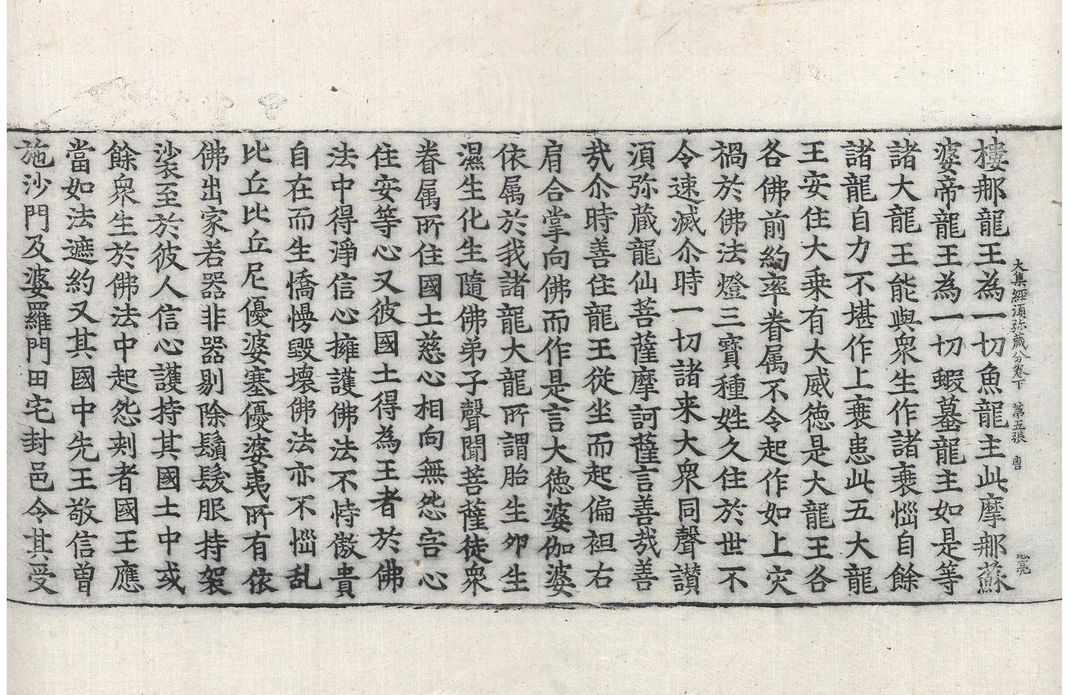 樓那龍王為一切魚龍主此摩那蘇
大集經須弥蔵分卷下 第五張 唐
婆帝龍王為一切蝦蟇龍主如是等
諸大龍王能與衆生作諸衰惱自餘
諸龍自力不堪作上衰患此五大龍
王安住大乗有大威徳是大龍王各
各佛前約率眷属不令起作如上灾
禍於佛法燈三寶種姓久住於世不
令速滅尒時一切諸来大衆同聲讃
須弥蔵龍仙菩薩摩訶薩言善哉善
哉尒時善住龍王従坐而起偏袒右
肩合掌向佛而作是言大徳婆伽婆
依属於我諸龍大龍所謂胎生夘生
濕生化生隨佛弟子聲聞菩薩徒衆
眷属所住國土慈心相向無怨害心
住安等心又彼國土得為王者於佛
法中得淨信心擁護佛法不恃傲貴
自在而生憍慢毀壞佛法亦不惱乱
比丘比丘尼優婆塞優婆夷所有依
佛出家若器非器剔除鬚髮服持袈
裟至於彼人信心護持其國土中或
餘衆生於佛法中起怨刾者國王應
當如法遮約又其國中先王敬信曽
施沙門及婆羅門田宅封邑令其受